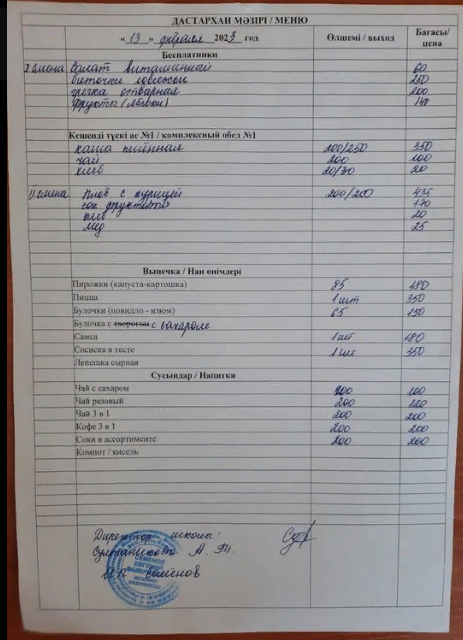 ДАСТАРХАН МӘЗІРІ / МЕНЮ
« 13 » февраля 2023 год Өлшемі / выход Бағасы/ цена
Бесплатники
I смена Салат витаминный 60
биточки 250
гречка отварная 200
фрукты (яблоки)
Кешенді түскі ас №1 / комплексный обед №1
каша пшённая 200/250 350
чай 200 100
хлеб 20/30 20
II смена Плов с курицей 200/250 435
сок фруктовый 170
хлеб 20
мёд 25
Выпечка / Нан өнімдері
Пирожки (капуста-картошка) 85 180
Пицца 1 шт 350
Булочки (повидло - изюм) 65 150
Булочка с творогом с сахаром
Самса 1 шт 180
Сосиска в тесте 1 шт 350
Лепешка сырная
Сусындар / Напитки
Чай с сахаром 200 100
Чай разовый 200 120
Чай 3 в 1 200 200
Кофе 3 в 1 200 200
Соки в ассортименте 200 200
Компот / кисель
Директор школы:
А. Т.
ИП Семёнов
СЕМЕНОВ
ЕВГЕНИЙ